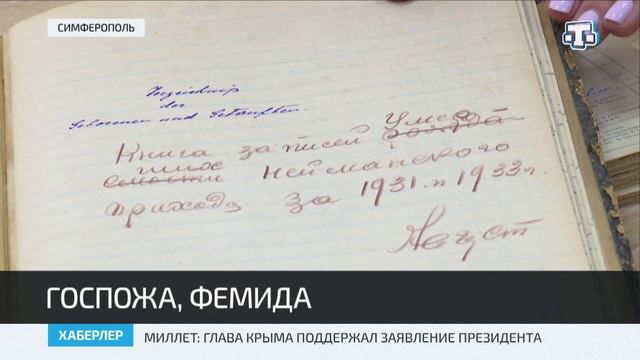 СИМФЕРОПОЛЬ
Т
Verzeichnis
der
Geborenen und Getauften.
Книга записей Умер
ших Нейманского
прихода за 1931 и 1933 г.
Август
ГОСПОЖА, ФЕМИДА
ХАБЕРЛЕР
МИЛЛЕТ: ГЛАВА КРЫМА ПОДДЕРЖАЛ ЗАЯВЛЕНИЕ ПРЕЗИДЕНТА